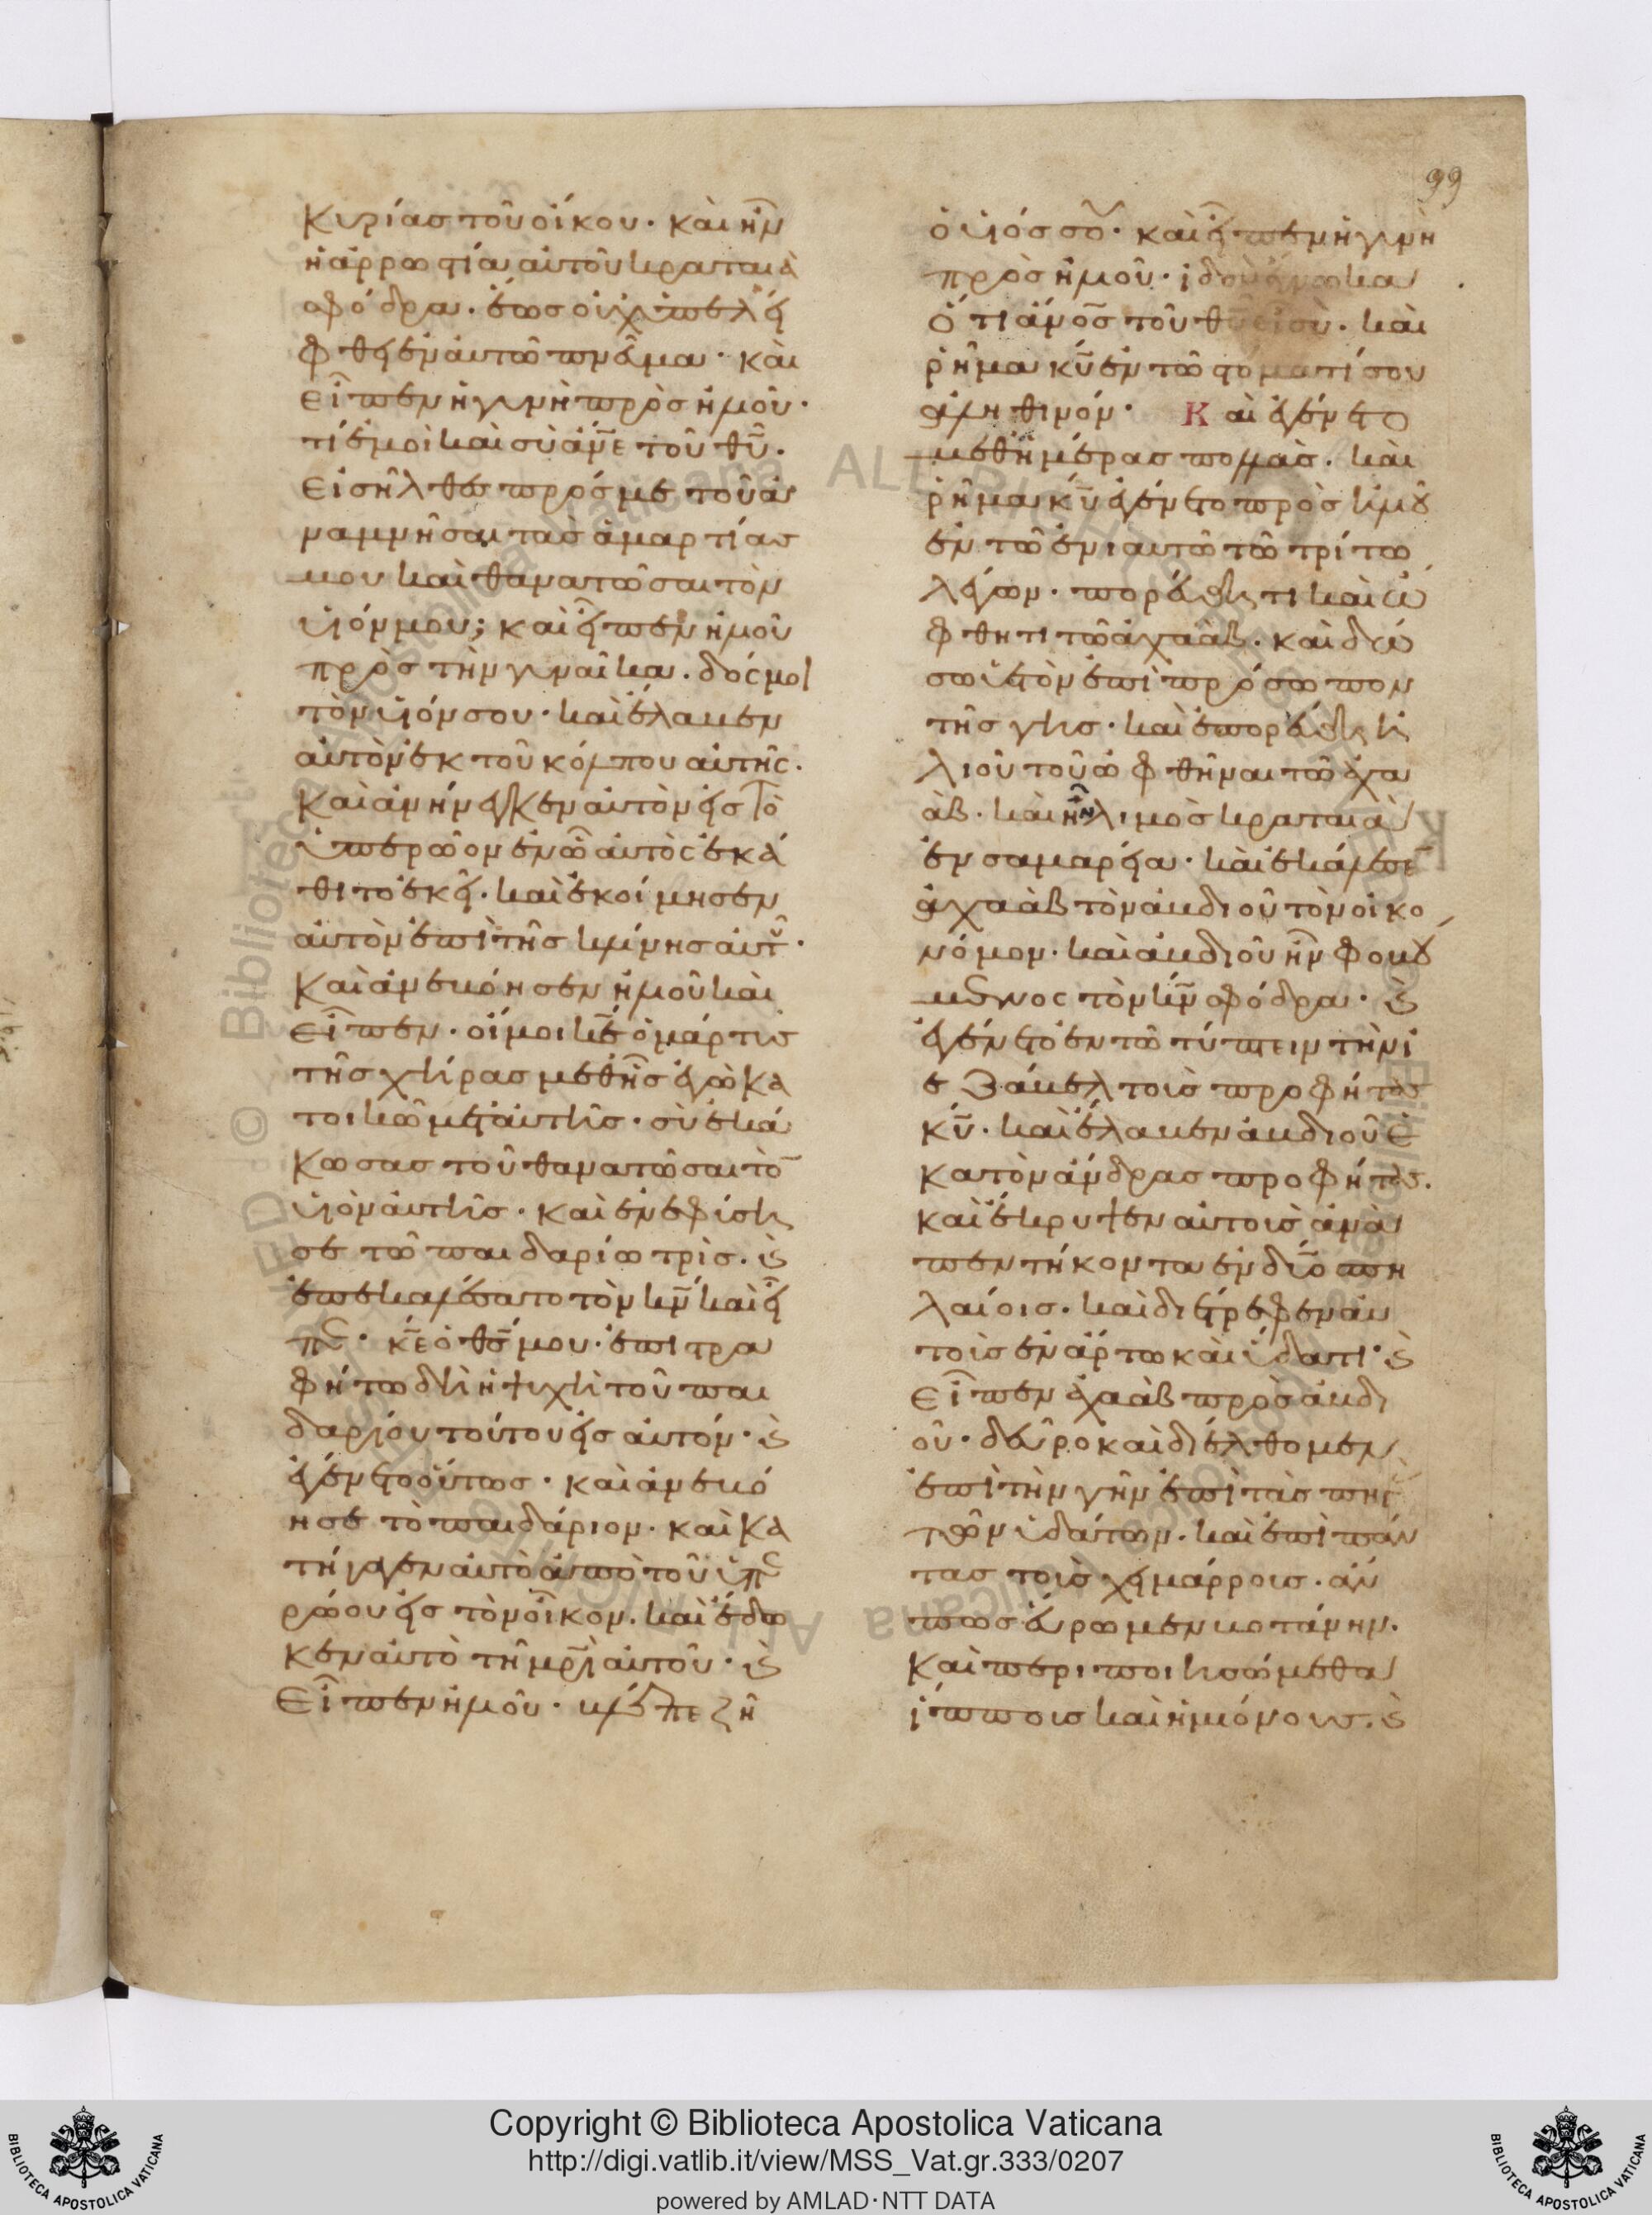 99
κυρίας τοῦ οἴκου· καὶ ἦν
ἡ ἀρρωστία αὐτοῦ κραταιὰ
σφόδρα. ἕως οὐχ ὑπελεί
φθη ἐν αὐτῶ πνεῦμα· καὶ
εἶπεν ἡ γυνὴ πρὸς ἠλιού·
τί ἐμοὶ καὶ σὺ ἄνε τοῦ θῦ.
εἰσῆλθες πρός με τοῦ ἀ
ναμνῆσαι τὰς ἁμαρτίας
μου καὶ θανατῶσαι τὸν
υἱόν μου; καὶ εἶπεν ἠλιοῦ
πρὸς τὴν γυναῖκα. δός μοι
τὸν υἱόν σου· καὶ ἔλαβεν
αὐτὸν ἐκ τοῦ κόλπου αὐτῆς.
καὶ ἀνήνεγκεν αὐτὸν εἰς τὸ
ὑπερῶον ἐν ὧ αὐτὸς ἐκά
θιτο ἐκεῖ. καὶ ἐκοίμησεν
αὐτὸν ἐπὶ τῆς κλίνης αὐτοῦ·
καὶ ἀνεβόησεν ἠλιοῦ καὶ
εἶπεν· οἴμοι κε ὁ μάρτυς
τῆς χήρας μεθ' ἧς ἐγὼ κα
τοικῶ μετ' αὐτῆς· σὺ ἐκά
κωσας τοῦ θανατῶσαι τὸ
υἱὸν αὐτῆς· καὶ ἐνεφύση
σε τῶ παιδαρίω τρὶς. καὶ
ἐπεκαλέσατο τὸν κν καὶ εἶ
πεν· κε ὁ θς μου· ἐπιστρα
φήτω δὴ ἡ ψυχὴ τοῦ παι
δαρίου τούτου εἰς αὐτόν· καὶ
ἐγένετο οὕτως· καὶ ἀνεβό
ησε τὸ παιδάριον· καὶ κα
τήγαγεν αὐτὸ ἀπὸ τοῦ ὑπε
ρώου εἰς τὸν οἶκον. καὶ ἔδω
κεν αὐτὸ τῆ μρὶ αὐτοῦ· καὶ
εἶπεν ἠλιοῦ· βλέπε ζῆ
ὁ υἱός σου· καὶ εἶπεν ἡ γυνὴ
πρὸς ἠλιοῦ· ἰδοὺ ἔγνωκα
ὅτι ἄνος τοῦ θῦ εἶ σὺ. καὶ
ρῆμα κῦ ἐν τῶ στόματί σου
ἀληθινόν· Καὶ ἐγένετο
μεθ' ἡμέρας πολλὰς. καὶ
ρῆμα κῦ ἐγένετο πρὸς ἠλιοῦ
ἐν τῶ ἐνιαυτῶ τῶ τρίτω
λέγων· πορεύθητι καὶ ὤ
φθητι τῶ ἀχαάβ. καὶ δώ
σω ὑετὸν ἐπὶ πρόσωπον
τῆς γῆς· καὶ ἐπορεύθη ἠ
λιοῦ τοῦ ὀφθῆναι τῶ ἀχα
άβ. καὶ ἦν λιμὸς κραταιὰ
ἐν σαμαρεία· καὶ ἐκάλεσε
ἀχαὰβ τὸν ἀβδιοῦ τὸν οἰκο
νόμον· καὶ ἀβδιοῦ ἦν φοβού
μενος τὸν κν σφόδρα· καὶ
ἐγένετο ἐν τῶ τύπτειν τὴν ἰ
εζάβελ τοὺς προφήτας
κῦ. καὶ ἔλαβεν ἀβδιοῦ ἑ
κατὸν ἄνδρας προφήτας.
καὶ ἔκρυψεν αὐτοὺς ἀνὰ
πεντήκοντα ἐν δύο σπη
λαίοις. καὶ διέτρεφεν αὐ
τοὺς ἐν ἄρτω καὶ ὕδατι· καὶ
εἶπεν ἀχαὰβ πρὸς ἀβδι
οῦ· δεῦρο καὶ διέλθομεν
ἐπὶ τὴν γῆν ἐπὶ τὰς πηγὰς
τῶν ὑδάτων. καὶ ἐπὶ πάν
τας τοὺς χειμάρρους. ἄν
πως εὕρωμεν βοτάνην.
καὶ περιποιησώμεθα
ἵππους καὶ ἡμιόνους. καὶ
Copyright © Biblioteca Apostolica Vaticana
http://digi.vatlib.it/view/MSS_Vat.gr.333/0207
powered by AMLAD·NTT DATA
BIBLIOTECA APOSTOLICA VATICANA
BIBLIOTECA APOSTOLICA VATICANA